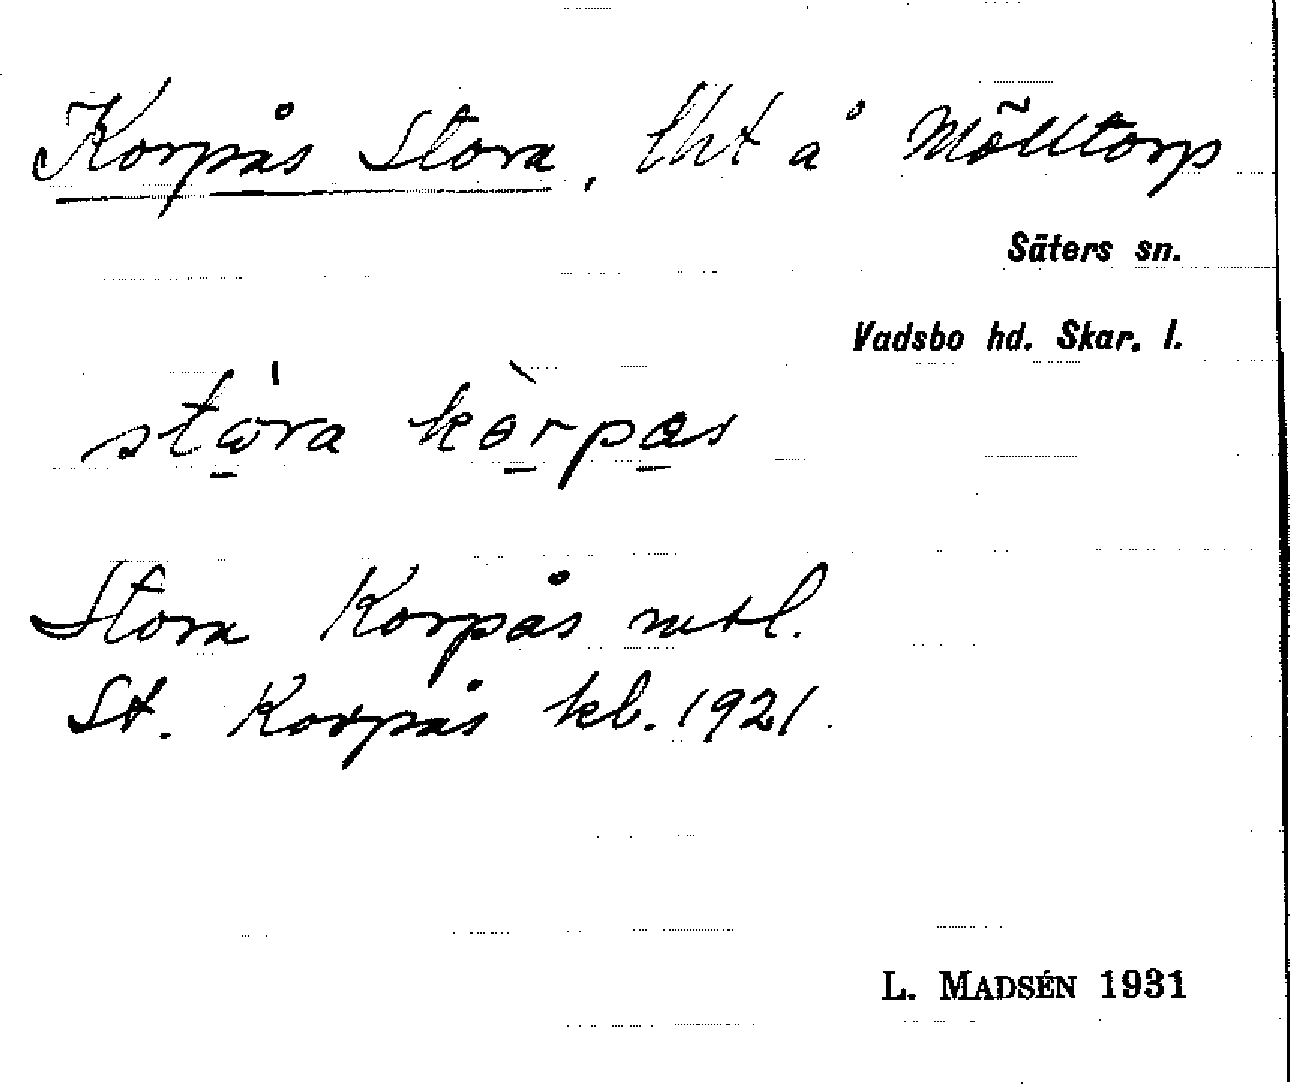 Korpås Stora, lht å Mölltorp
Säters sn.
Vadsbo hd. Skar. l.
stωra kǒrpas
Stora Korpås mtl.
St. Korpås kb. 1921.
L. MADSÉN 1931